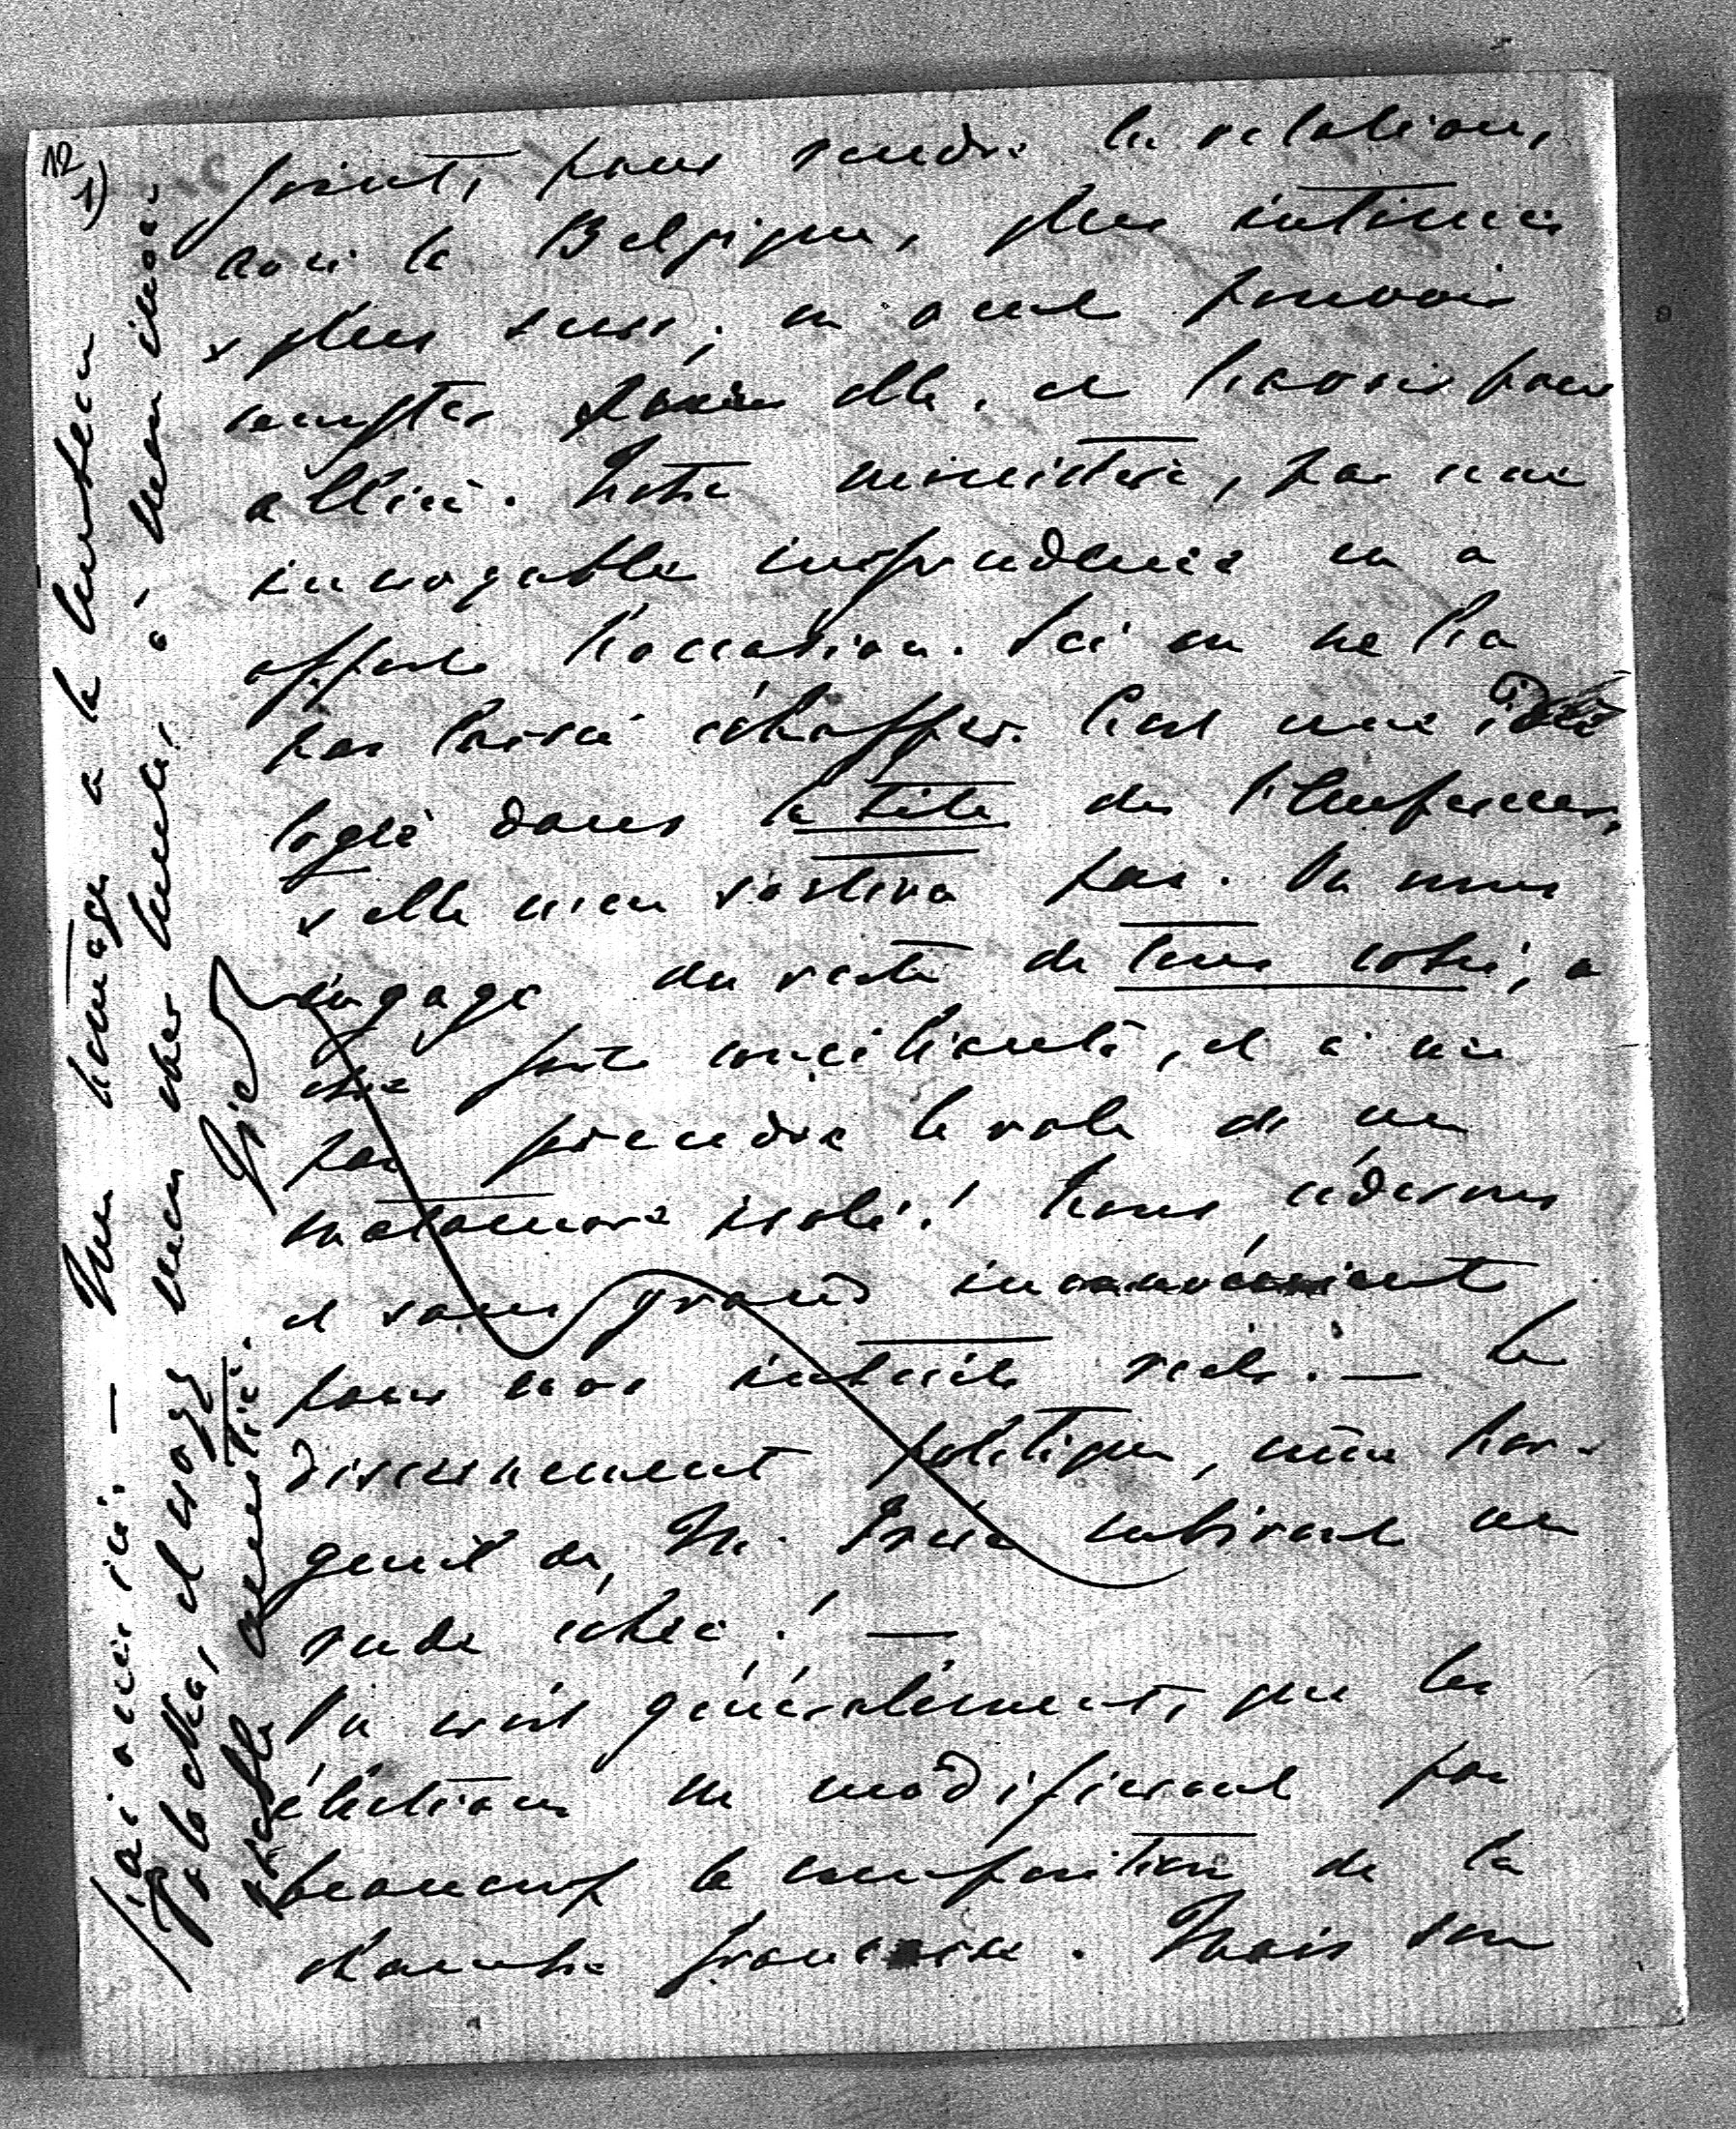 12
1)
point, pour rendre les relations,
avec la Belgique, plus intimes
& plus sures; on veut pouvoir
compter sur elle, et l'avoir pour
alliée. Notre ministère, par une
incroyable imprudence en a
offert l'occasion. Ici on ne l'a
pas laissé échapper. C'est une idée
logée dans la tête de l'Empereur,
& elle n'en sortira pas. On nous
engage du reste de tous cotés, a
être conciliants, et à ne
pas prendre le role de un
matamore isolé! Nous céderons
et sans grand inconvénient
pour nos intérêts réels. — Le
discernement politique, même l'or-
gueil de M. Frère subiront un
rude échec! —
On croit généralement, que les
élections ne modifieront pas
beaucoup la composition de la
chambre française. Mais son
J'ai
— Mon hommage a la
et
mon cher
amitié.